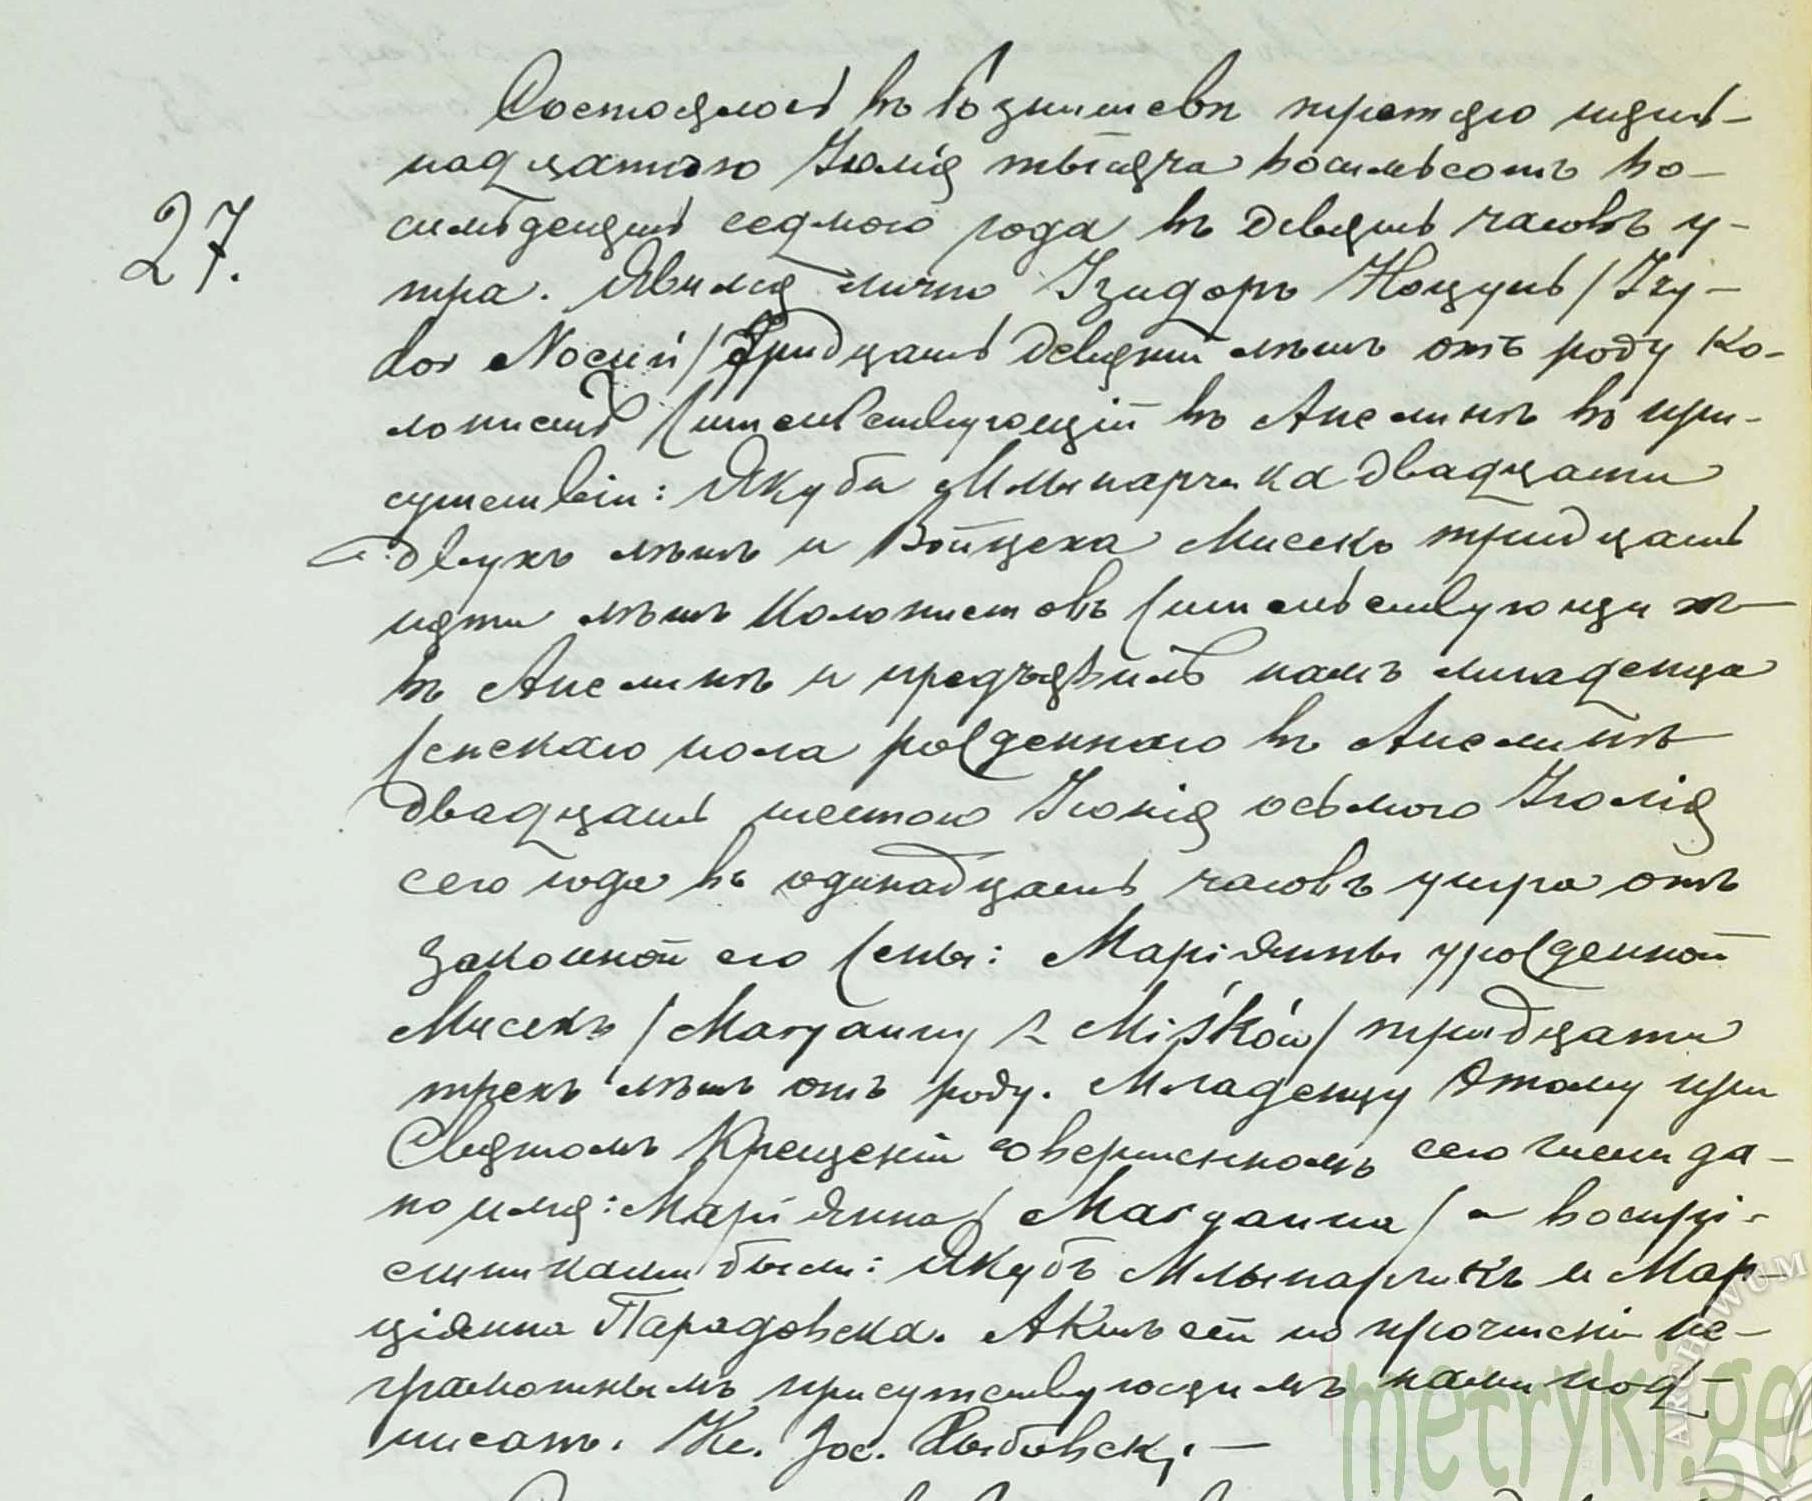 Состоялось въ Возишевѣ третяго пять-
27.
надцатого Iюлія тысяча восемьсотъ во-
семьдесятъ седмого года въ девять часовъ у-
тра. Явился лично Iзидоръ Ноцунь /Izy-
dor Nocuń/ тридцать девяти лѣтъ отъ роду ко-
лонистъ жительствующій въ Анелинѣ въ при-
сутствіи: Якуба Млынарчика двадцати
двухъ лѣтъ и Войцеха Мисекъ тридцать
пяти лѣтъ колонистовъ жительствующихъ
въ Анелинѣ и предъявилъ намъ младенца
женскаго пола рожденнаго въ Анелинѣ
двадцать шестого Iюнія осьмого Iюлія
сего года въ одинадцать часовъ утра отъ
законной его жены: Маріянны урожденной
Мисекъ /Maryanny z Miśków/ тридцати
трехъ лѣтъ отъ роду. Младенцу этому при
Святомъ Крещеніи совершенномъ сего числа да-
но имя: Маріянна /Maryanna/ а воспрі-
емниками были: Якубъ Млынарчикъ и Мар-
ціянна Парадовска. Актъ сей по прочтеніи не-
грамотнымъ присутствующимъ нами под-
писатъ. Кс. Iос.
ARCHIWUM
metryki.ge